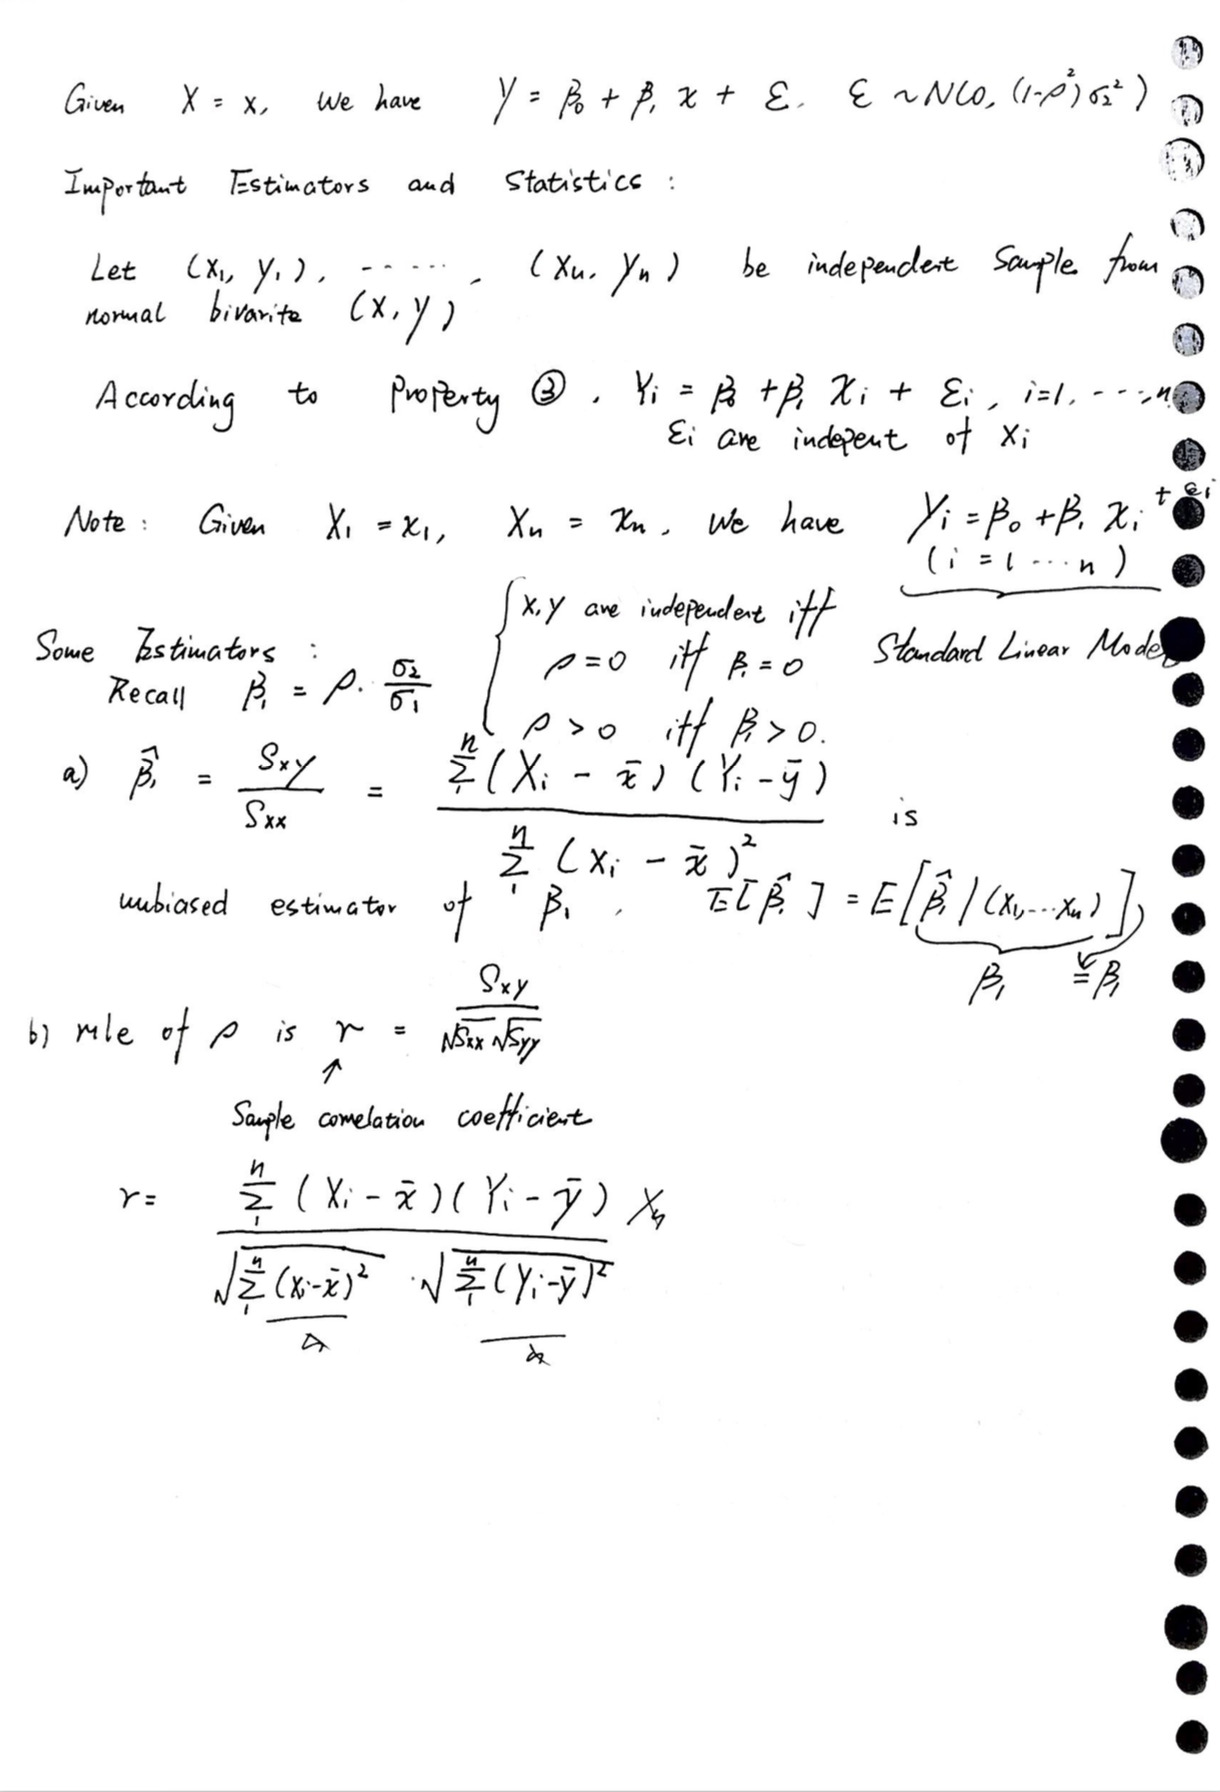 Given X = x, We have Y = β₀ + β₁ x + ε. ε ~ N(0, (1-ρ²)σ₂²)
Important Estimators and Statistics :
Let (X₁, Y₁), ....., (Xn, Yn) be independent Sample from
normal bivarite (X, Y)
According to Property ③, Yi = β₀ + β₁ Xi + εi, i=1, ---, n
εi are indepent of Xi
Note : Given X₁ = x₁, Xn = xn, We have Yi = β₀ + β₁ xi + εi
(i = 1 ... n)
Standard Linear Model
Some Estimators :
Recall β₁ = ρ · σ₂/σ₁
{ X, Y are independent iff
ρ = 0 iff β₁ = 0
ρ > 0 iff β₁ > 0.
a) β̂₁ = Sxy / Sxx = Σ₁ⁿ (Xi - x̄)(Yi - ȳ) / Σ₁ⁿ (Xi - x̄)² is
unbiased estimator of β₁, E[β̂₁] = E[β̂₁ | (X₁, ... Xn)]
β₁ = β₁
b) mle of ρ is r = Sxy / √Sxx √Syy
↑
Sample correlation coefficient
r = Σ₁ⁿ (Xi - x̄)(Yi - ȳ) / √Σ₁ⁿ (Xi - x̄)² · √Σ₁ⁿ (Yi - ȳ)²